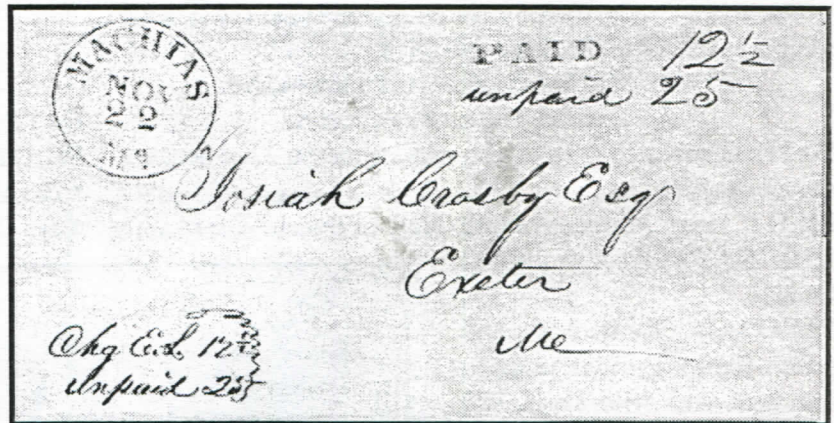 MACHIAS
NOV
22
Me
PAID 12½
unpaid 25
Josiah Crosby Esq
Exeter
Me
Chg E.L. 12½
Unpaid 25